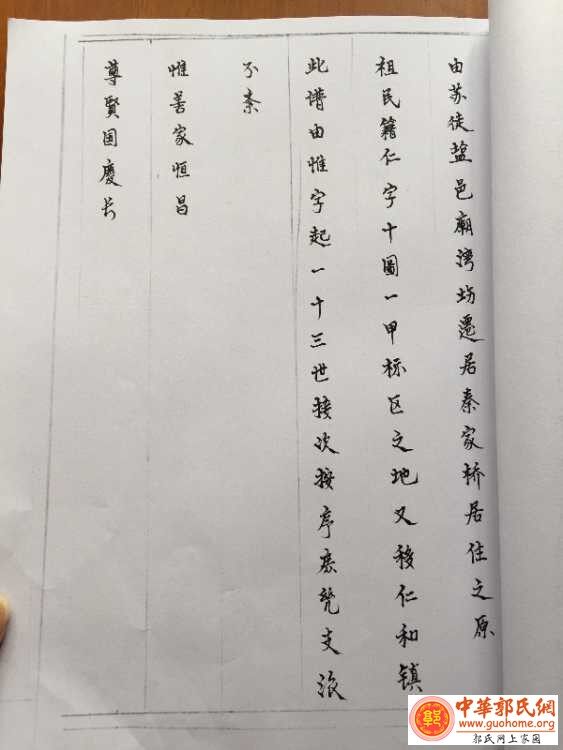 由苏徒盐邑廟湾坊遷居秦家桥居住之原
祖民籍仁字十圖一甲标区之地又移仁和镇
此谱由惟字起一十三世接次按序庶凳支派
不紊
惟善家恒昌
尊賢国慶长
郭
中華郭氏網
www.guohome.org
郭氏网上家园